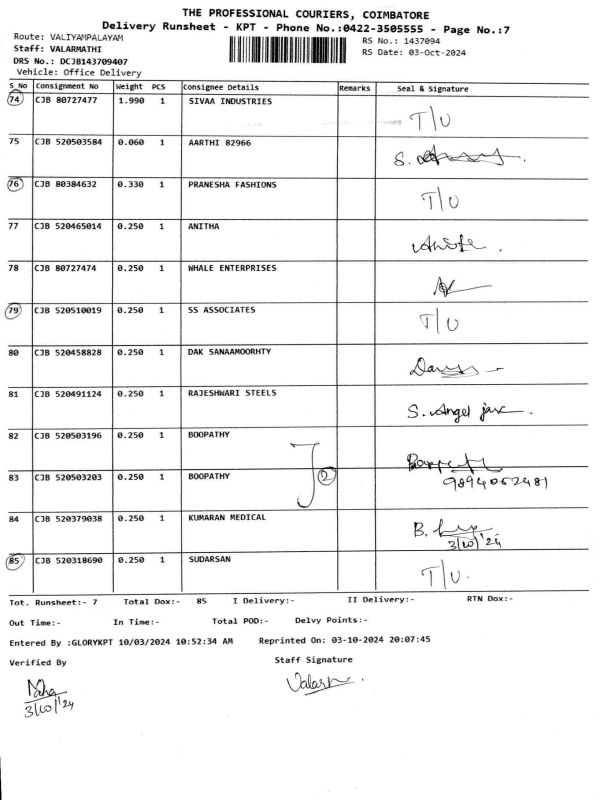 THE PROFESSIONAL COURIERS, COIMBATORE
Delivery Runsheet - KPT - Phone No.:0422-3505555 - Page No.:7
Route: VALIYAMPALAYAM
RS No.: 1437094
Staff: VALARMATHI
RS Date: 03-Oct-2024
DRS No.: DCJB143709407
Vehicle: Office Delivery
S_No Consignment No Weight PCS Consignee Details Remarks Seal & Signature
74 CJB 80727477 1.990 1 SIVAA INDUSTRIES T/U
75 CJB 520503584 0.060 1 AARTHI 82966 S.
76 CJB 80384632 0.330 1 PRANESHA FASHIONS T/U
77 CJB 520465014 0.250 1 ANITHA
78 CJB 80727474 0.250 1 WHALE ENTERPRISES
79 CJB 520510019 0.250 1 SS ASSOCIATES T/U
80 CJB 520458828 0.250 1 DAK SANAAMOORHTY
81 CJB 520491124 0.250 1 RAJESHWARI STEELS S. Angel
82 CJB 520503196 0.250 1 BOOPATHY
83 CJB 520503203 0.250 1 BOOPATHY 2 9894052481
84 CJB 520379038 0.250 1 KUMARAN MEDICAL B.
3/10/'24
85 CJB 520318690 0.250 1 SUDARSAN T/U.
Tot. Runsheet:- 7 Total Dox:- 85 I Delivery:- II Delivery:- RTN Dox:-
Out Time:- In Time:- Total POD:- Delvy Points:-
Entered By :GLORYKPT 10/03/2024 10:52:34 AM Reprinted On: 03-10-2024 20:07:45
Verified By Staff Signature
3/10/'24